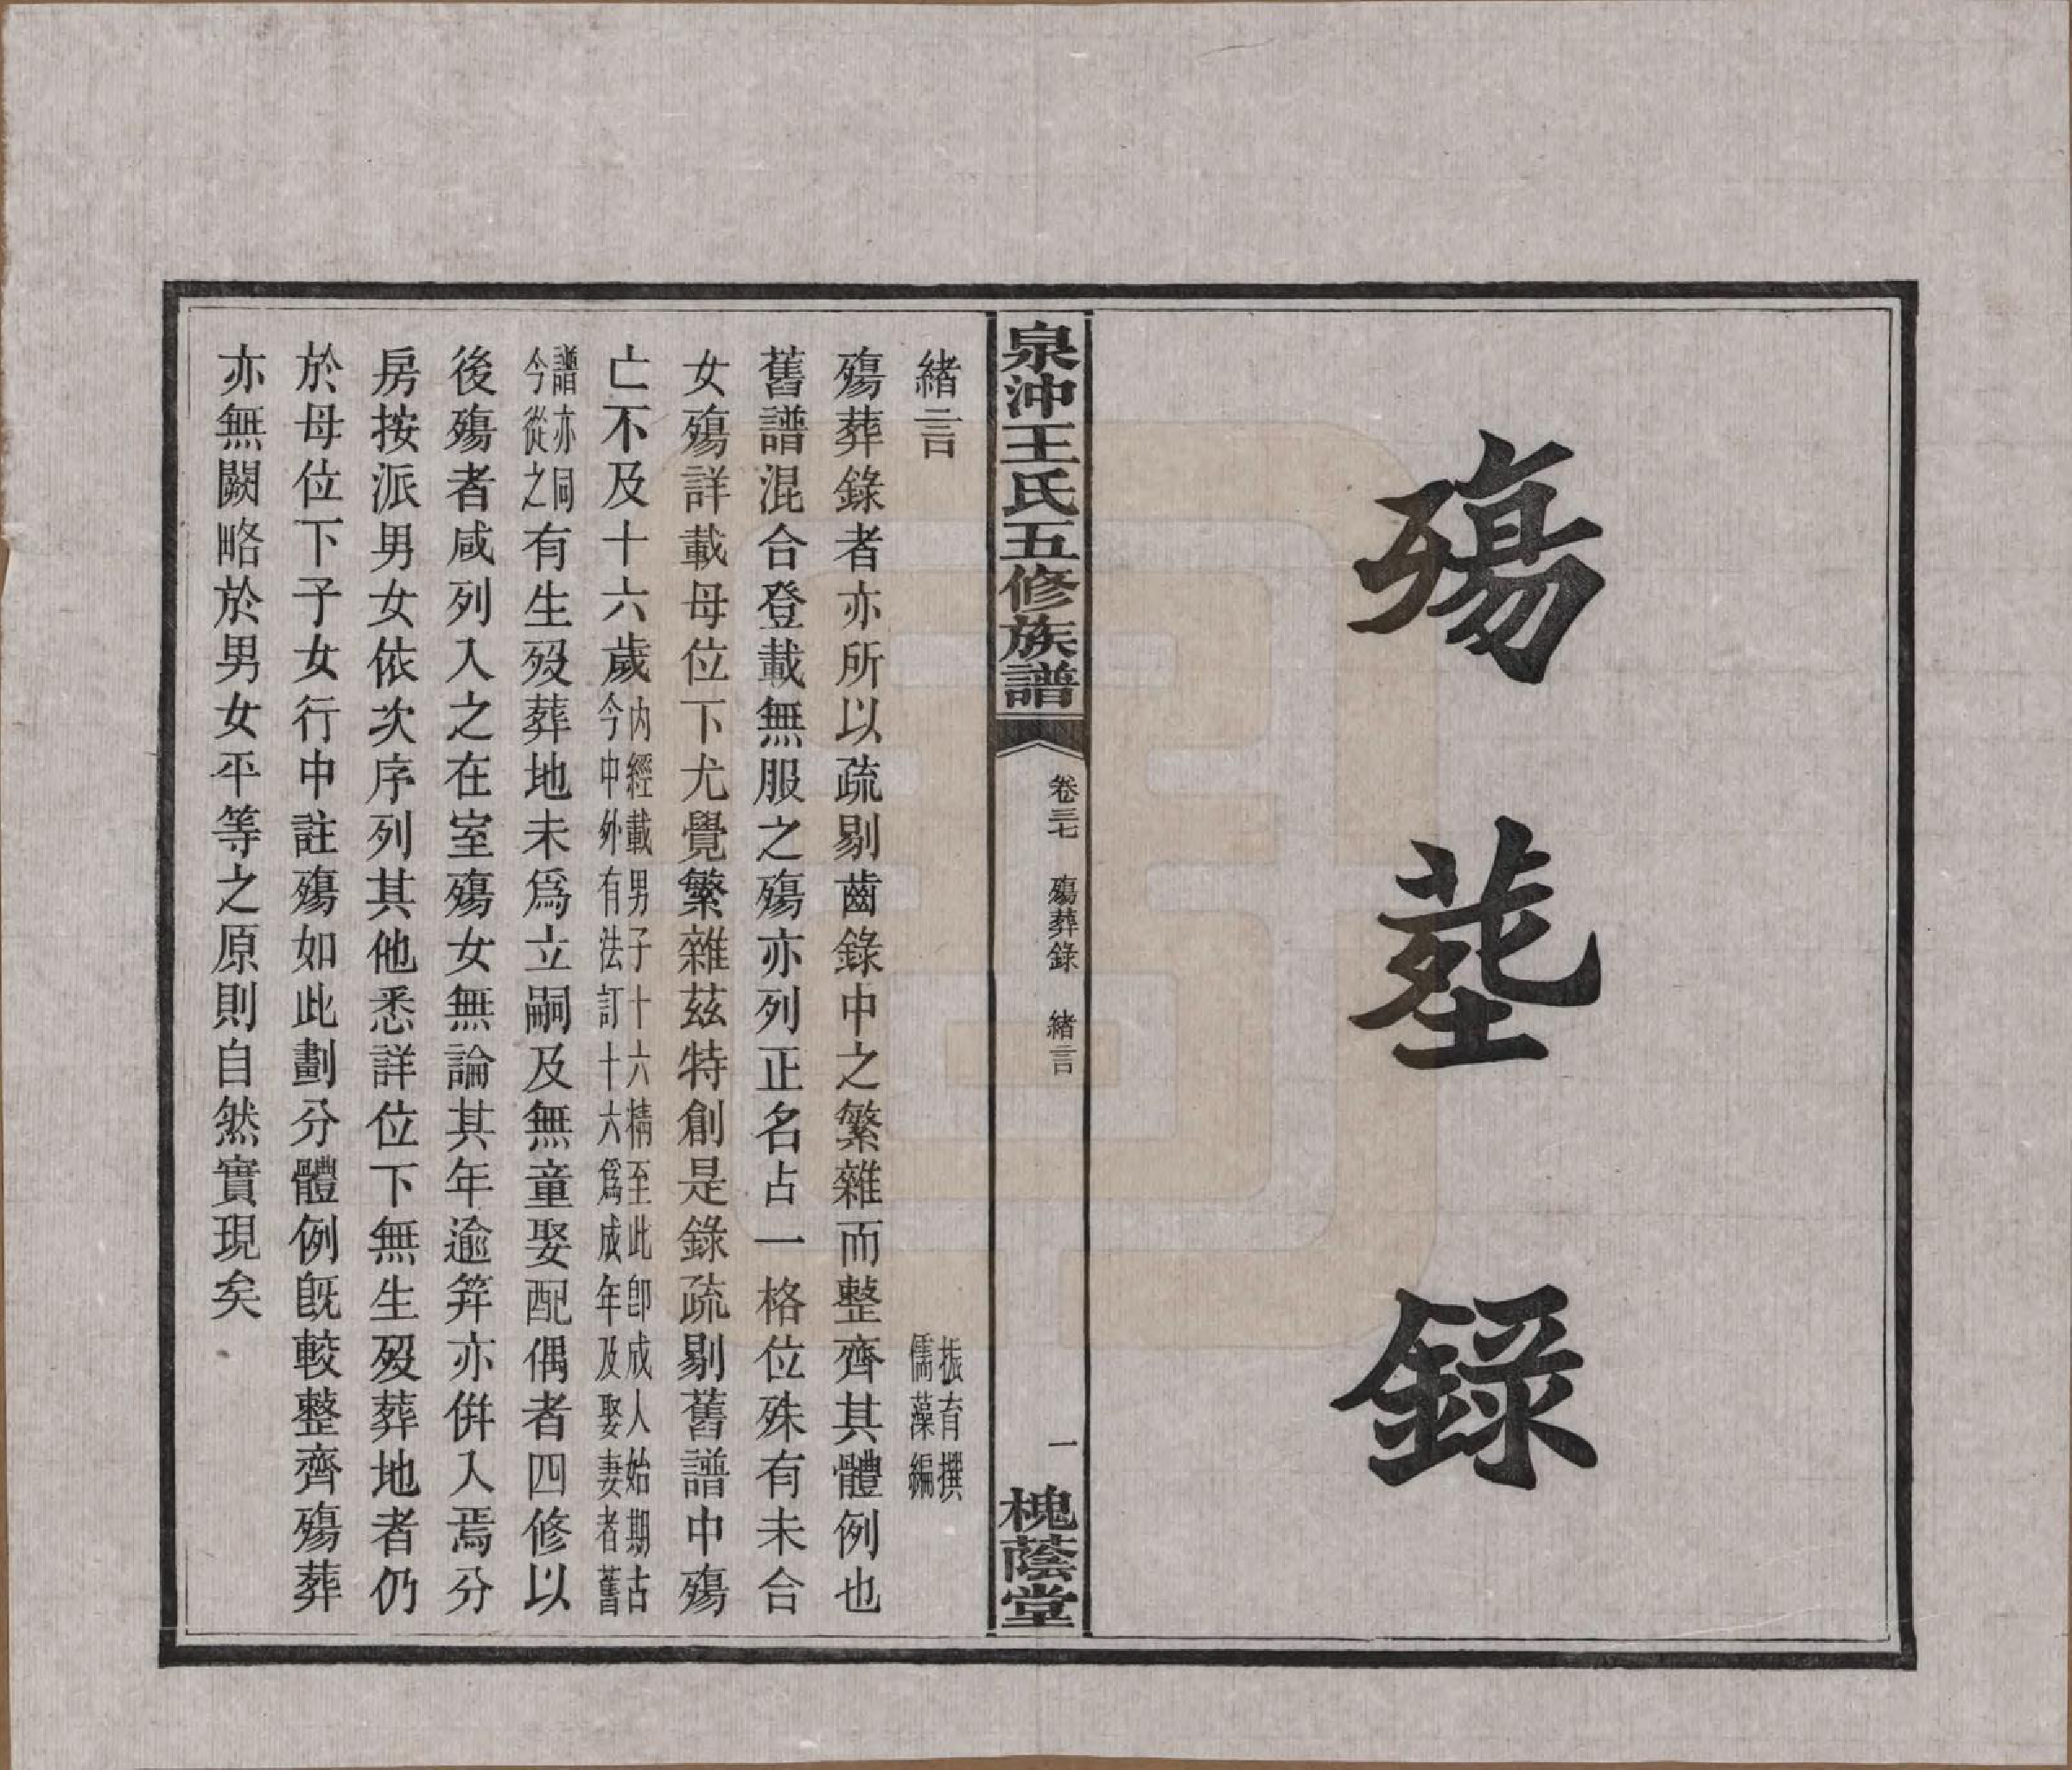 殤塟錄
泉沖王氏五修族譜
卷三七 殤葬錄 緒言
一
槐蔭堂
緒言
振育撰
儒藻編
殤葬錄者亦所以疏剔齒錄中之繁雜而整齊其體例也
舊譜混合登載無服之殤亦列正名占一格位殊有未合
女殤詳載母位下尤覺繁雜茲特創是錄疏剔舊譜中殤
亡不及十六歲內經載男子十六精至此卽成人始期古今中外有法訂十六爲成年及娶妻者舊
譜亦同今從之有生歿葬地未爲立嗣及無童娶配偶者四修以
後殤者咸列入之在室殤女無論其年逾笄亦倂入焉分
房按派男女依次序列其他悉詳位下無生歿葬地者仍
於母位下子女行中註殤如此劃分體例旣較整齊殤葬
亦無闕略於男女平等之原則自然實現矣